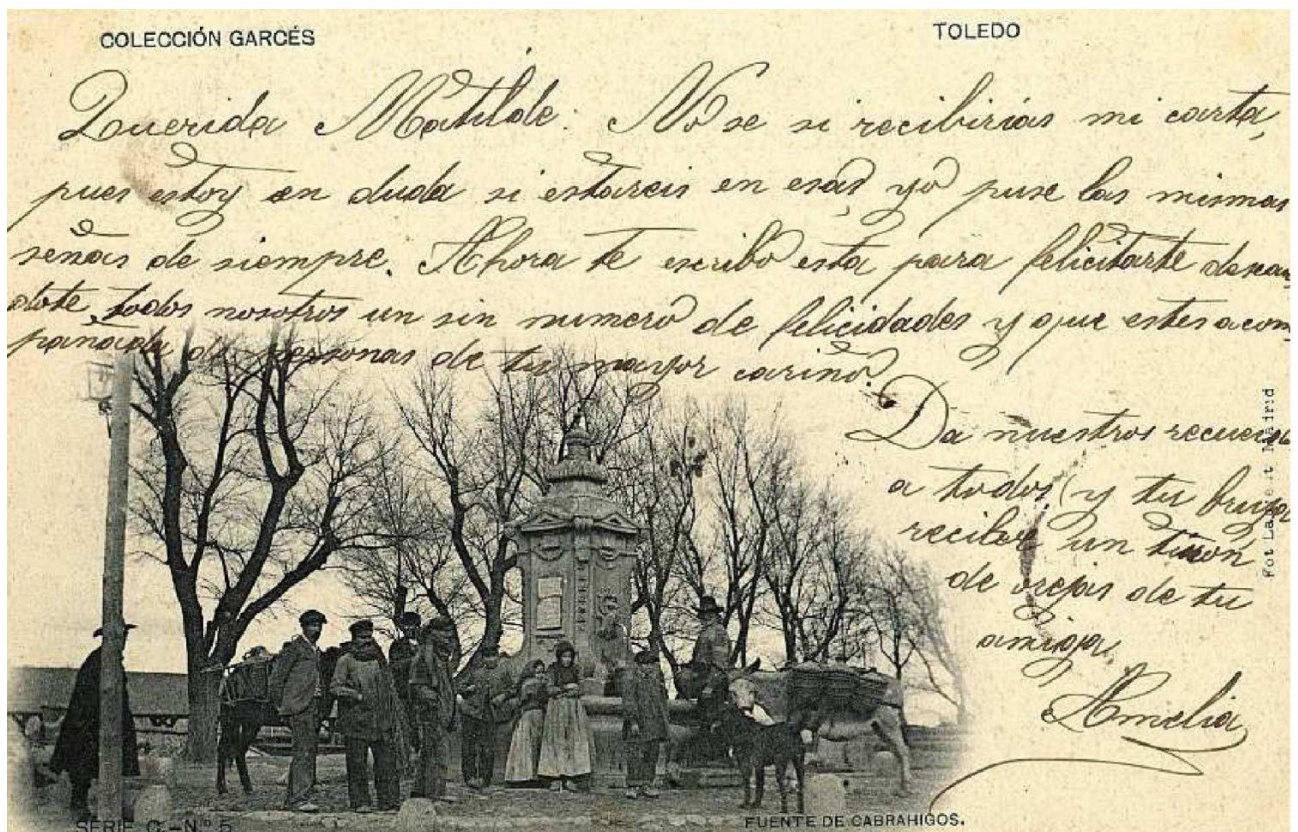 COLECCIÓN GARCÉS
TOLEDO
Querida Matilde: No se si recibirias mi carta,
pues estoy en duda si estareis en esa, yo puse las mismas
señas de siempre. Ahora te escribo esta para felicitarte desean
dote todos nosotros un sin numero de felicidades y que estes acom
pañada de personas de tu mayor cariño.
Da nuestros recuerdos
a todos y tu
recibe un tiron
de orejas de tu
amiga
Amelia
Madrid
SERIE C.-Nº 5
FUENTE DE CABRAHIGOS.